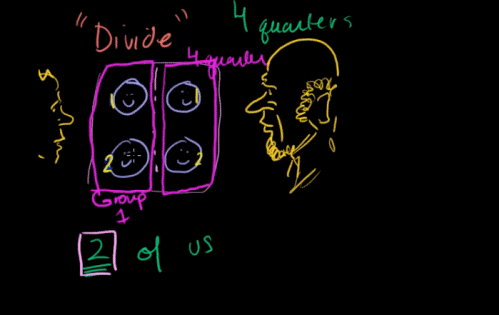 "Divide"
4 quarters
4 quarter
1 1
2 2
Group
1
2 of us